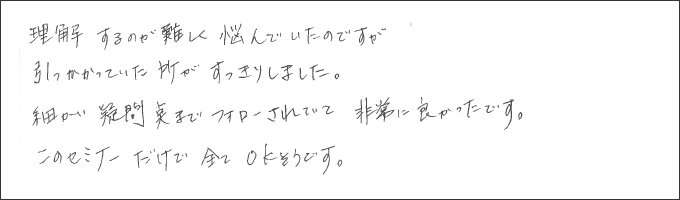 理解するのが難しく悩んでいたのですが
引っかかっていた所がすっきりしました。
細かい疑問点までフォローされていて非常に良かったです。
このセミナーだけで全てOKそうです。